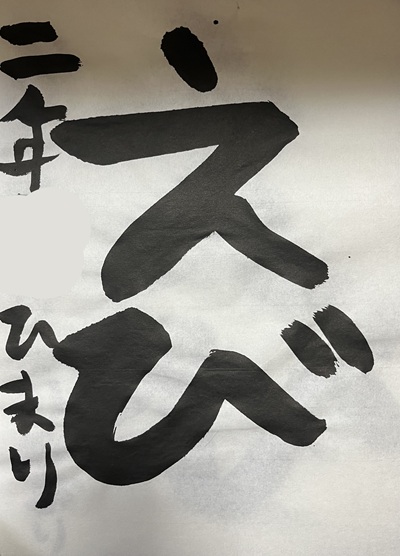 えび
二年 ひまり